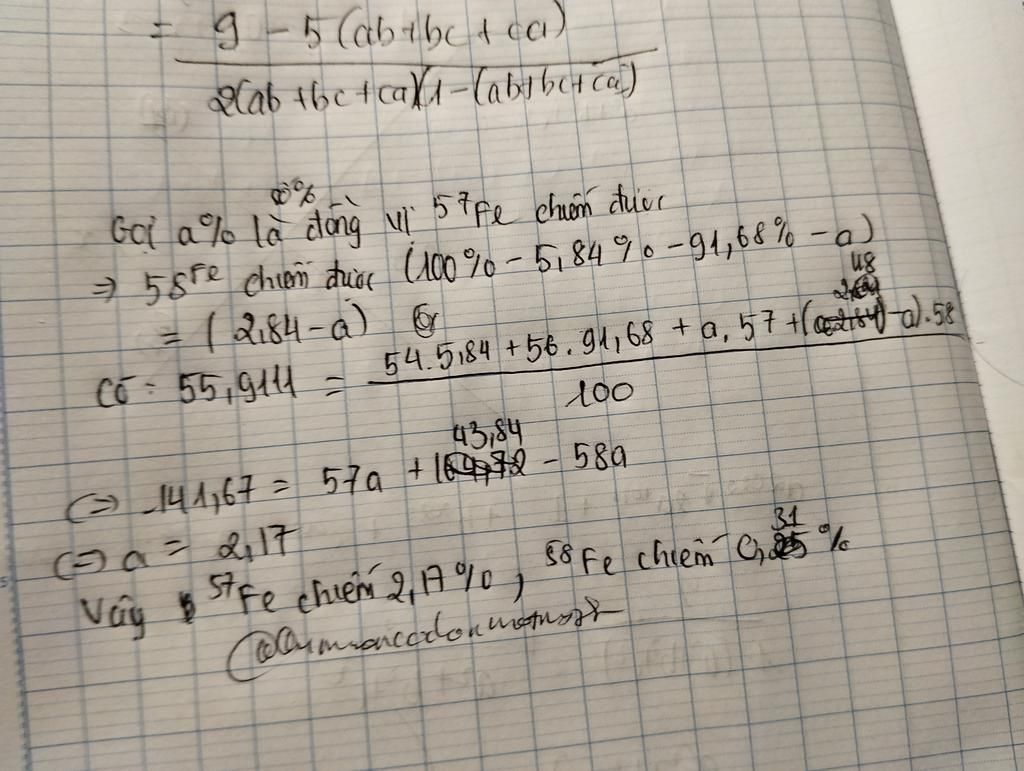 = 9 - 5(ab+bc+ca) / 2(ab+bc+ca)(1-(ab+bc+ca)
Gọi a% là đồng vị ⁵⁷Fe chiếm được
⇒ 58Fe chiếm được (100% - 5,84% - 91,68% - a)
= (2,84 - a)
Có: 55,9111 = 54.5,84 + 56.91,68 + a.57 + (2,48 - a).58 / 100
(=) 141,67 = 57a + 143,84 - 58a
(=) a = 2,17
Vậy ⁵⁷Fe chiếm 2,17%, ⁵⁸Fe chiếm 0,31%